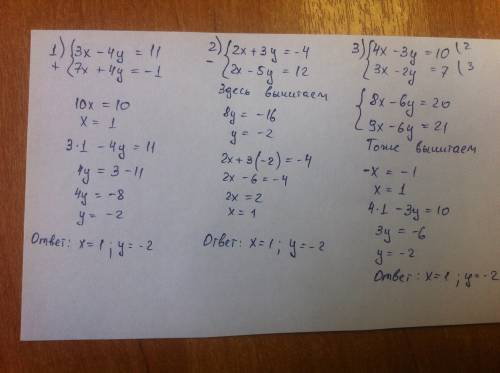 1) + { 3x - 4y = 11
7x + 4y = -1
10x = 10
x = 1
3·1 - 4y = 11
4y = 3 - 11
4y = -8
y = -2
Ответ: x=1; y=-2
2) - { 2x + 3y = -4
2x - 5y = 12
Здесь вычитаем
8y = -16
y = -2
2x + 3(-2) = -4
2x - 6 = -4
2x = 2
x = 1
Ответ: x=1; y=-2
3) { 4x - 3y = 10 | 2
3x - 2y = 7 | 3
{ 8x - 6y = 20
9x - 6y = 21
Тоже вычитаем
-x = -1
x = 1
4·1 - 3y = 10
3y = -6
y = -2
Ответ: x=1; y=-2